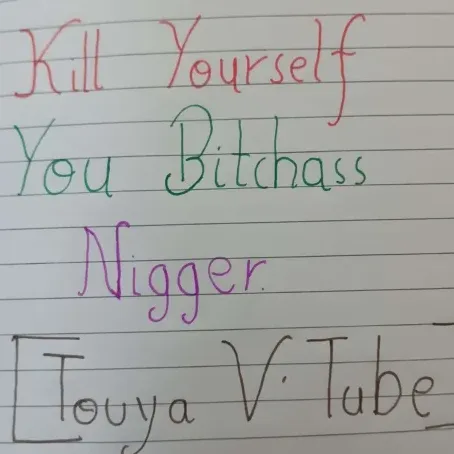 Kill Yourself
You Bitchass
Nigger.
[Touya V. Tube]